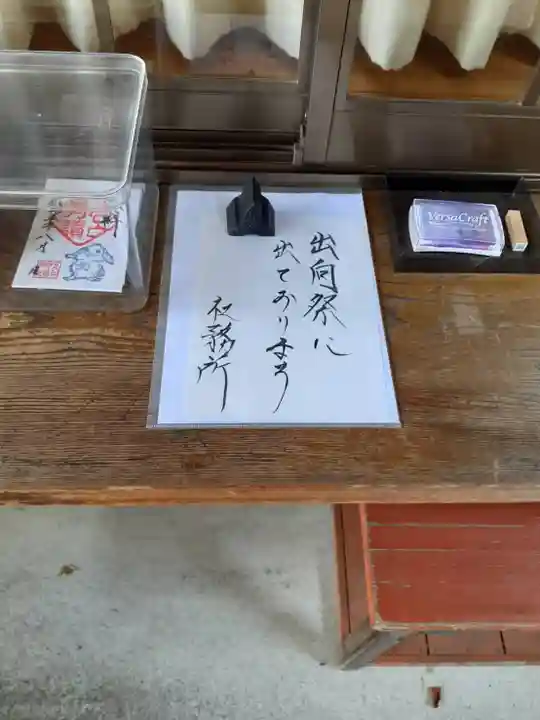 出向祭に
出ております
社務所
VersaCraft